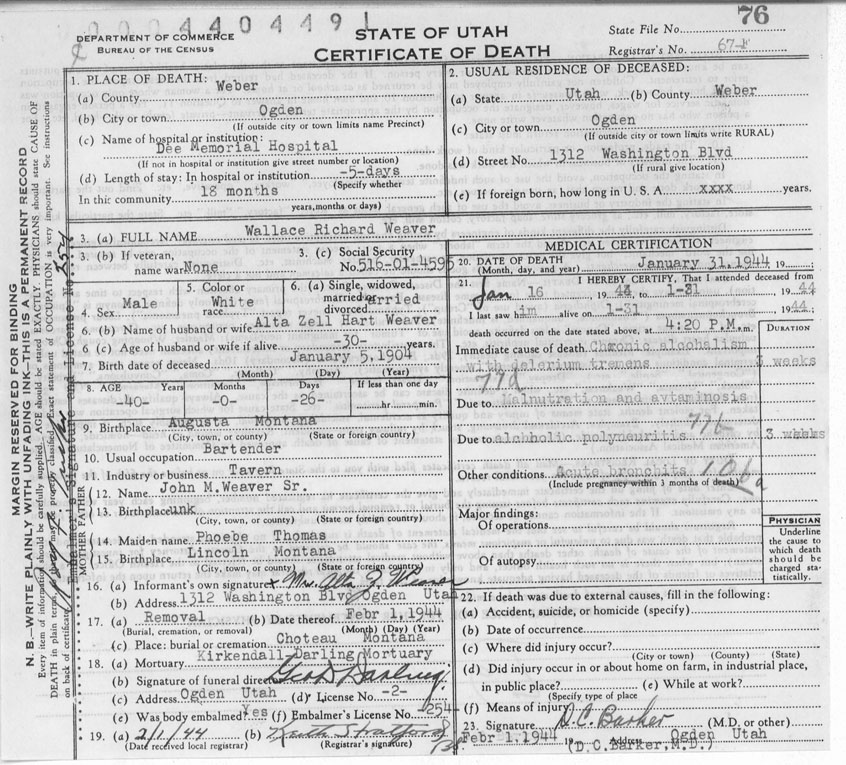 0004404491
76
DEPARTMENT OF COMMERCE
BUREAU OF THE CENSUS
STATE OF UTAH
CERTIFICATE OF DEATH
State File No.
Registrar's No. 67-1
MARGIN RESERVED FOR BINDING
N. B.—WRITE PLAINLY WITH UNFADING INK—THIS IS A PERMANENT RECORD
Every item of information should be carefully supplied. AGE should be stated EXACTLY. PHYSICIANS should state CAUSE OF
DEATH in plain terms, so that it may be properly classified. Exact statement of OCCUPATION is very important. See instructions
on back of certificate.
Embalmer's Signature and License No. 254
1. PLACE OF DEATH:
(a) County Weber
(b) City or town Ogden
(If outside city or town limits name Precinct)
(c) Name of hospital or institution:
Dee Memorial Hospital
(If not in hospital or institution give street number or location)
(d) Length of stay: In hospital or institution -5-days
(Specify whether
In this community 18 months
years, months or days)
2. USUAL RESIDENCE OF DECEASED:
(a) State Utah (b) County Weber
(c) City or town Ogden
(If outside city or town limits write RURAL)
(d) Street No. 1312 Washington Blvd
(If rural give location)
(e) If foreign born, how long in U. S. A. xxxx years.
3. (a) FULL NAME Wallace Richard Weaver
3. (b) If veteran,
name war None
3. (c) Social Security
No. 516-01-4595
4. Sex Male
5. Color or
race White
6. (a) Single, widowed,
married, divorced married
6. (b) Name of husband or wife Alta Zell Hart Weaver
6 (c) Age of husband or wife if alive -30- years.
7. Birth date of deceased January 5, 1904
(Month) (Day) (Year)
8. AGE Years Months Days If less than one day
-40- -0- -26- hr. min.
9. Birthplace Augusta Montana
(City, town, or county) (State or foreign country)
10. Usual occupation Bartender
11. Industry or business Tavern
FATHER
12. Name John M. Weaver Sr.
13. Birthplace unk
(City, town, or county) (State or foreign country)
MOTHER
14. Maiden name Phoebe Thomas
15. Birthplace Lincoln Montana
(City, town, or county) (State or foreign country)
16. (a) Informant's own signature x Mrs. Alta Z. Weaver
(b) Address 1312 Washington Blvd Ogden Utah
17. (a) Removal (b) Date thereof Febr 1, 1944
(Burial, cremation, or removal) (Month) (Day) (Year)
(c) Place: burial or cremation Choteau Montana
18. (a) Mortuary Kirkendall-Darling Mortuary
(b) Signature of funeral director Geo D Darling
(c) Address Ogden Utah (d) License No. -2-
(e) Was body embalmed? Yes (f) Embalmer's License No. -254-
19. (a) 2/1/44 (b) Ruth Stratford
(Date received local registrar) (Registrar's signature)
MEDICAL CERTIFICATION
20. DATE OF DEATH
(Month, day, and year) January 31, 1944 19
21. I HEREBY CERTIFY, That I attended deceased from
Jan 16 1944 to 1-31 1944
I last saw him alive on 1-31 1944
death occurred on the date stated above, at 4:20 P.M. m.
DURATION
Immediate cause of death Chronic alcohalism
with delerium tremens 3 weeks
77d
Due to Malnutration and avtaminosis
Due to alchholic polyneuritis 77b 3 weeks
Other conditions Acute bronchits 106a
(Include pregnancy within 3 months of death)
Major findings:
Of operations
Of autopsy
PHYSICIAN
Underline
the cause to
which death
should be
charged sta-
tistically.
22. If death was due to external causes, fill in the following:
(a) Accident, suicide, or homicide (specify)
(b) Date of occurrence
(c) Where did injury occur?
(City or town) (County) (State)
(d) Did injury occur in or about home on farm, in industrial place,
in public place? (e) While at work?
(Specify type of place
(f) Means of injury
23. Signature D.C. Barker (M.D. or other)
Febr 1, 1944 19 (D.C. Barker, M.D.) Ogden Utah